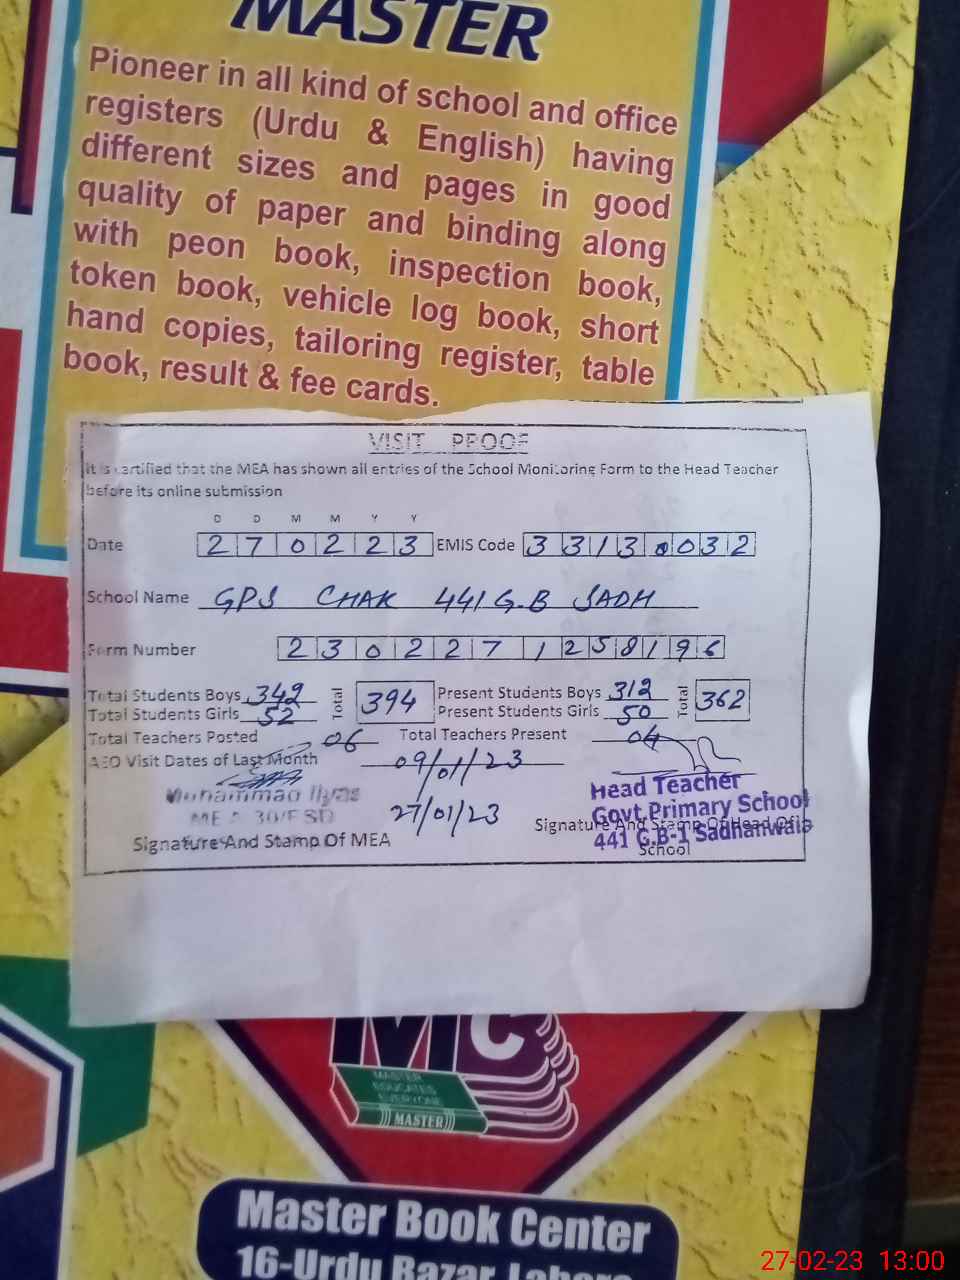 MASTER
Pioneer in all kind of school and office
registers (Urdu & English) having
different sizes and pages in good
quality of paper and binding along
with peon book, inspection book,
token book, vehicle log book, short
hand copies, tailoring register, table
book, result & fee cards.
VISIT PROOF
It is certified that the MEA has shown all entries of the School Monitoring Form to the Head Teacher
before its online submission
D D M M Y Y
Date 2 7 0 2 2 3 EMIS Code 3 3 1 3 0 0 3 2
School Name GPS CHAK 441 G.B SADH
Form Number 2 3 0 2 2 7 1 2 5 8 1 9 6
Total Students Boys 342 Total 394 Present Students Boys 312 Total 362
Total Students Girls 52 Present Students Girls 50
Total Teachers Posted 06 Total Teachers Present 04
AEO Visit Dates of Last Month 09/01/23
27/01/23
Muhammad Ilyas
MEA 30/FSD
Signature And Stamp Of MEA
Head Teacher
Govt. Primary School
441 G.B-1 Sadhanwala
Signature And Stamp Of Head Of
School
MC
MASTER
EDUCATES
EVERYONE
MASTER
Master Book Center
16-Urdu Bazar, Lahore
27-02-23 13:00